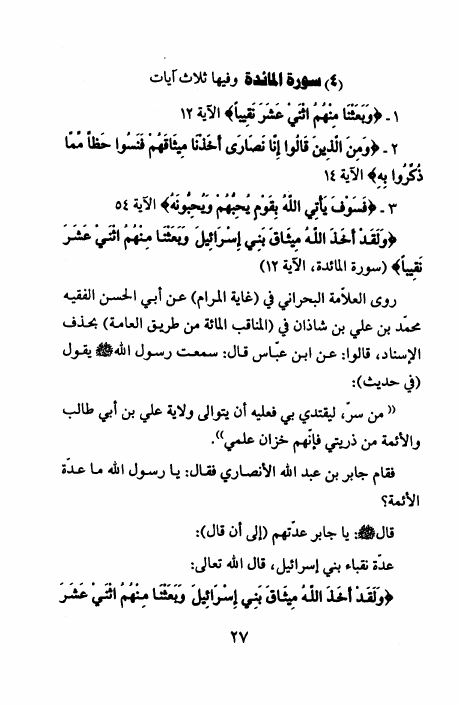 (٤) سورة المائدة وفيها ثلاث آيات
١ ـ ﴿وَبَعَثْنَا مِنْهُمُ اثْنَيْ عَشَرَ نَقِيباً﴾ الآية ١٢
٢ ـ ﴿وَمِنَ الَّذِينَ قَالُوا إِنَّا نَصَارَى أَخَذْنَا مِيثَاقَهُمْ فَنَسُوا حَظّاً مِمَّا
ذُكِّرُوا بِهِ﴾ الآية ١٤
٣ ـ ﴿فَسَوْفَ يَأْتِي اللَّهُ بِقَوْمٍ يُحِبُّهُمْ وَيُحِبُّونَهُ﴾ الآية ٥٤
﴿وَلَقَدْ أَخَذَ اللَّهُ مِيثَاقَ بَنِي إِسْرَائِيلَ وَبَعَثْنَا مِنْهُمُ اثْنَيْ عَشَرَ
نَقِيباً﴾ (سورة المائدة، الآية ١٢)
روى العلّامة البحراني في (غاية المرام) عن أبي الحسن الفقيه
محمّد بن علي بن شاذان في (المناقب المائة من طريق العامة) بحذف
الإسناد، قالوا: عن ابن عبّاس قال: سمعت رسول الله ﷺ يقول
(في حديث):
«من سرّه ليقتدي بي فعليه أن يتوالى ولاية علي بن أبي طالب
والأئمة من ذريتي فإنّهم خزان علمي».
فقام جابر بن عبد الله الأنصاري فقال: يا رسول الله ما عدّة
الأئمة؟
قال ﷺ: يا جابر عدّتهم (إلى أن قال):
عدّة نقباء بني إسرائيل، قال الله تعالى:
﴿وَلَقَدْ أَخَذَ اللَّهُ مِيثَاقَ بَنِي إِسْرَائِيلَ وَبَعَثْنَا مِنْهُمُ اثْنَيْ عَشَرَ
٢٧